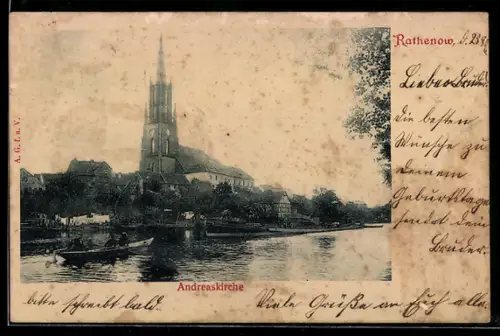 Rathenow, d. 28.
Lieber Bruder.
Die besten
Wünsche zu
Deinem
Geburtstage
sendet Dein
Bruder.
A. G. f. u. V.
Andreaskirche
bitte schreibt bald.
Viele Grüße an Euch alle.